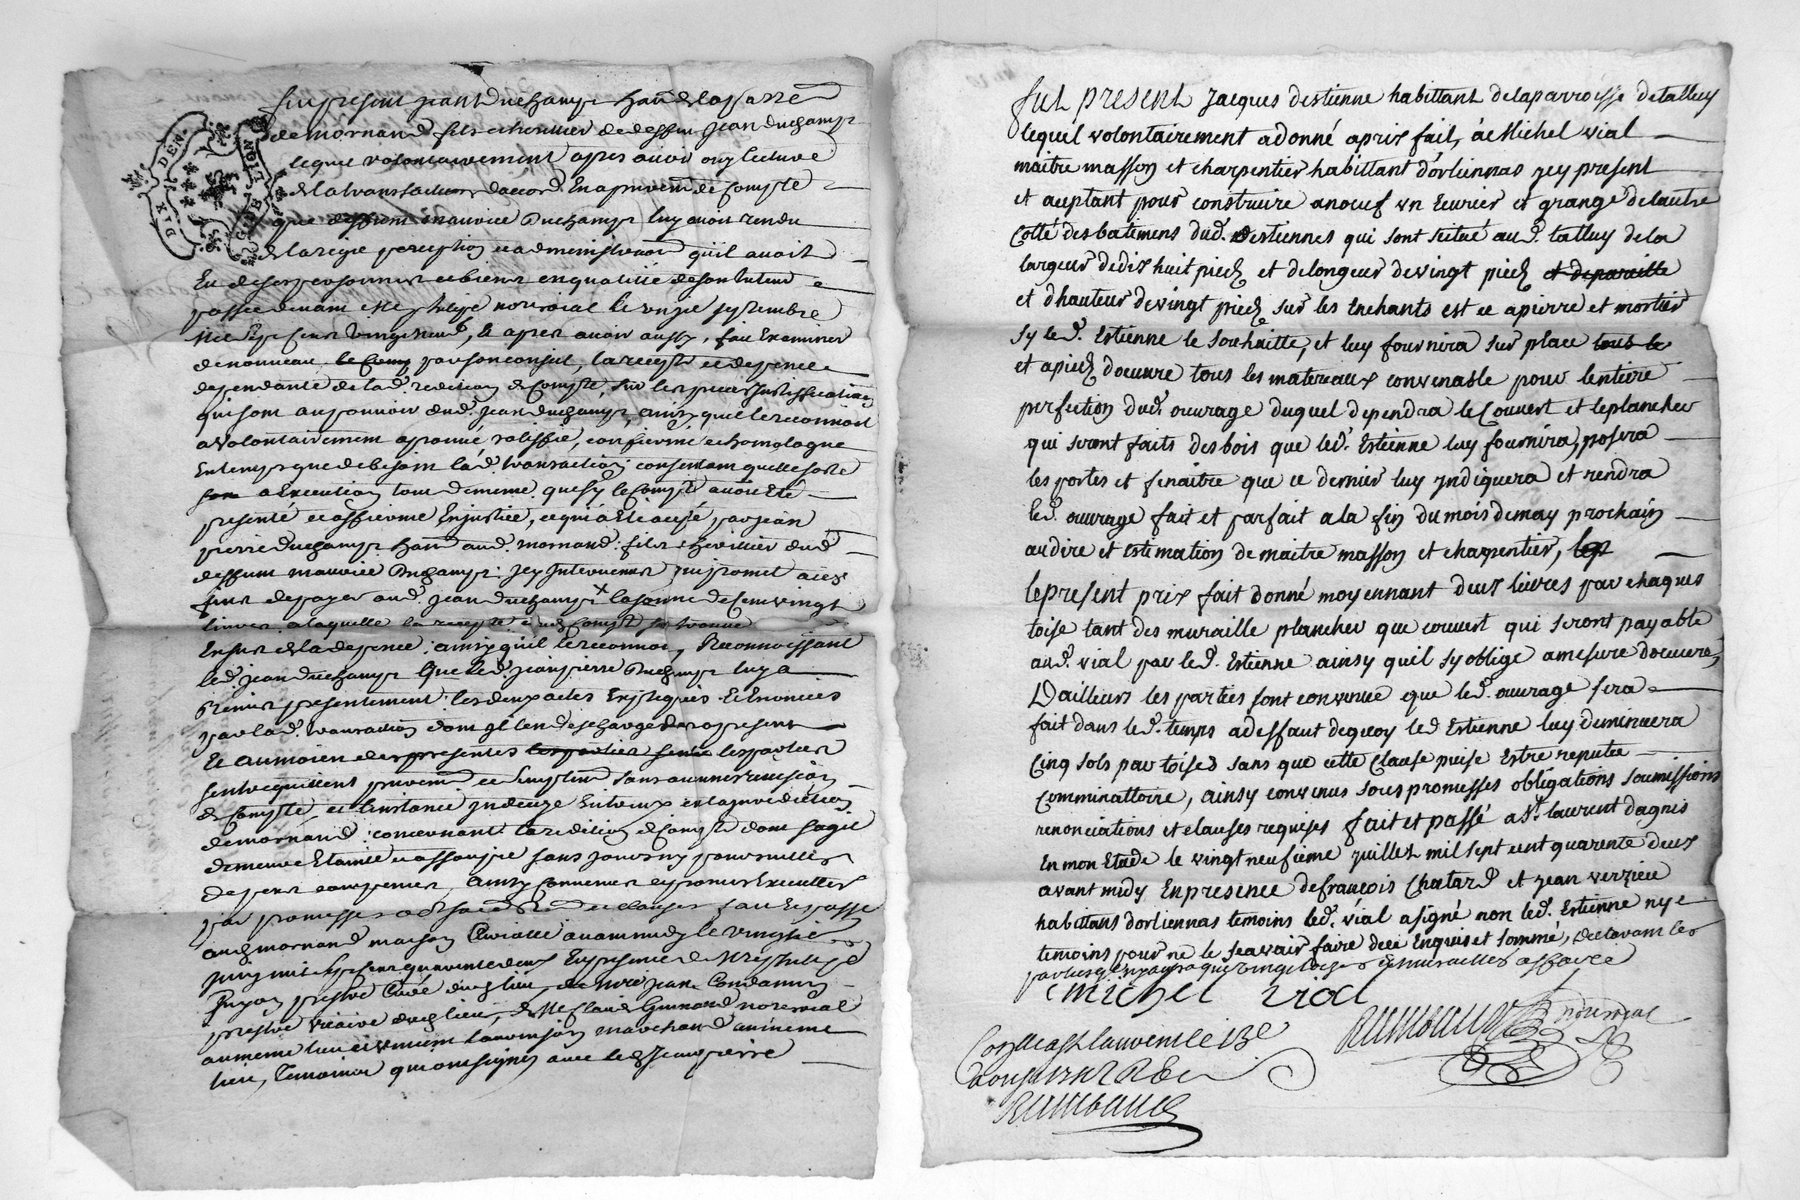 DIX DEN.
GNR. LION
fut present jean Duchamp hant. de la parre.
de mornand fils et heritier de deffun Jean duchamp
lequel volontairement apres avoir ouy lecture
de la transaction d'accord En apruvem. de Compte
que deffunt maurice Duchamp luy avoit rendu
de la regie perception et administration qu'il avoit
Eu de ses personnes et biens en qualitté de son tuteur
passée devant Me phlipe notroial le onze septembre
mil sept cent vingt neuf, Et apres avoir aussy, fait Examiner
de nouveau par son conseil, la recepte et depence
dependante de lad. redition de Compte, sur les pieces justifficatives
qui sont au pouvoir dud. Jean duchamp, ainsy qu'il le reconnoit
a volontairement aprouvé ratiffié, confirmé et homologué
En temps que de besoin lad. transaction: consentant quelle sorte
a Execution tout de meme que sy le Compte avoit Eté
presenté et affirme En justice, et qui a eté accepté, par jean
pierre Duchamp hant. aud. mornand. fils et heritier dud.
deffunt maurice Duchamp: Icy Intervenant, qui promet
de payer aud. Jean duchamp la somme de Cent vingt
livres a laquelle la recepte dud. Compte se trouve
Exceder la depence: ainsy qu'il le reconnoit, Reconnoissant
led. Jean duchamp que led. jean pierre Duchamp luy a
Remis presentement: les deux actes Expediés Et Enoncés
par lad. transaction dont il len descharge des apresent
Et au moien des presentes les parties
sentrequittent purem. et simplem. sans aucune revision
de Compte, et l'instance jndecize Entreux en la jurediction
de mornand: concernant la redition de Compte dont sagit
demeure Eteinte et assoupie sans pouvoir pour nulles
depens compenses, ainsy Convenus et promis Executter
par promesses obligaons. Rons. et clauses fait et passé
aud. mornand maison Curialle avant midy le vingtsix
juin mil sept cent quarente deux En presence de Mre phelipe
Guyon pretre Curé dud. lieu, de Mre Jean Condamin
pretre viccaire dud. lieu, de Me Claude Guinard not. roial
au meme lieu et marchand au meme
lieu, temoins qui ont signes avec led. Jean pierre
fut present Jacques destienne habittant de la parroisse de talluy
lequel volontairement a donné aprix fait, à Michel vial
maitre masson et charpentier habittant d'orliennas jcy present
et aceptant pour construire a noeuf un Ecurier et grange de l'autre
Cotté des batimens dud. Destiennes qui sont scitué aud. talluy de la
largeur de dix huit pieds et de longeur de vingt pieds et de pareille
et d'hauteur de vingt pieds sur les Enchants est ce a pierre et mortier
sy led. Estienne le souhaitte, et luy fournira sur place tous le
et a pieds d'oeuvre tous les materaux convenable pour lentiere
perfection dud. ouvrage duquel dependra le Couvert et le plancher
qui seront faits des bois que led. Estienne luy fournira, posera
les portes et fenaitre que ce dernier luy yndiquera et rendra
led. ouvrage fait et parfait a la fin du mois de may prochain
au dire et estimation de maitre masson et charpentier,
le present prix fait donné moyennant deux livres par chaques
toise tant des muraille plancher que couvert qui seront payable
aud. vial par led. Estienne ainsy quil sy oblige a mesure d'oeuvre,
Dailleurs les parties sont convenue que led. ouvrage sera
fait dans led. temps a deffaut de quoy led. Estienne luy diminuera
Cinq sols par toises sans que cette Clause puise Estre reputée
comminattoire, ainsy convenus sous promesses obligations soumissions
renonciations et clauses requises fait et passé a St. laurent dagnis
En mon Etude le vingt neufieme juillet mil sept cent quarente deux
avant midy En presence de françois Chatard et jean verzieu
habittans d'orliennas temoins led. vial a signé non led. Estienne ny
temoins pour ne le scavair faire dece Enquis et sommé, declarant les
parties
michel vial
Contlé a St laurent le
Reçu